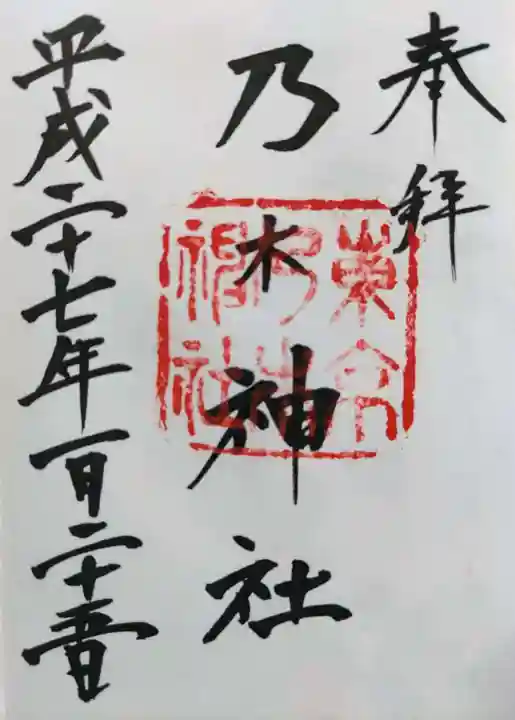 奉拝
乃木神社
東京
乃木
神社
平成二十七年一月二十五日